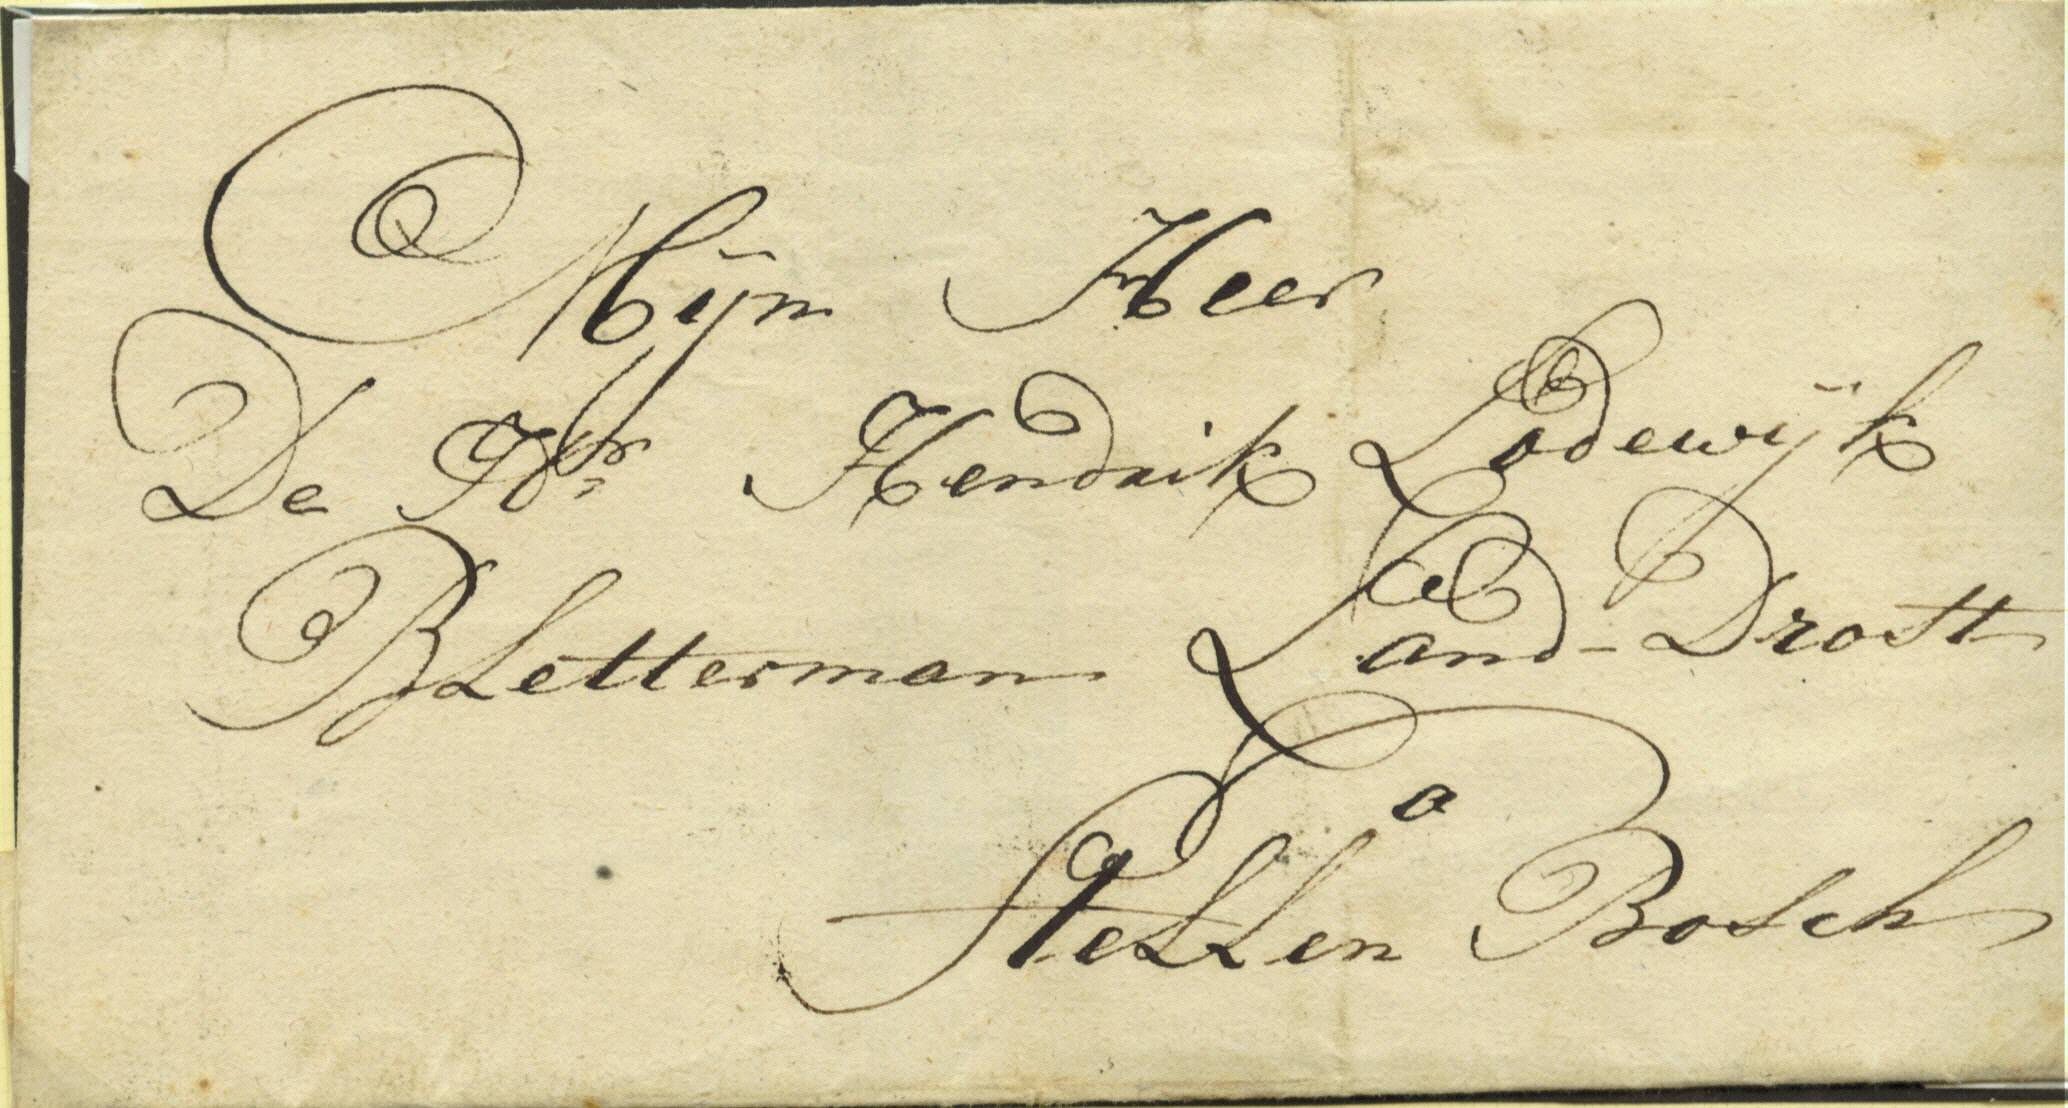 Mijn Heer
De Hr: Hendrik Lodewijk
BLetterman Land-Drost
a
SteLLen Bosch